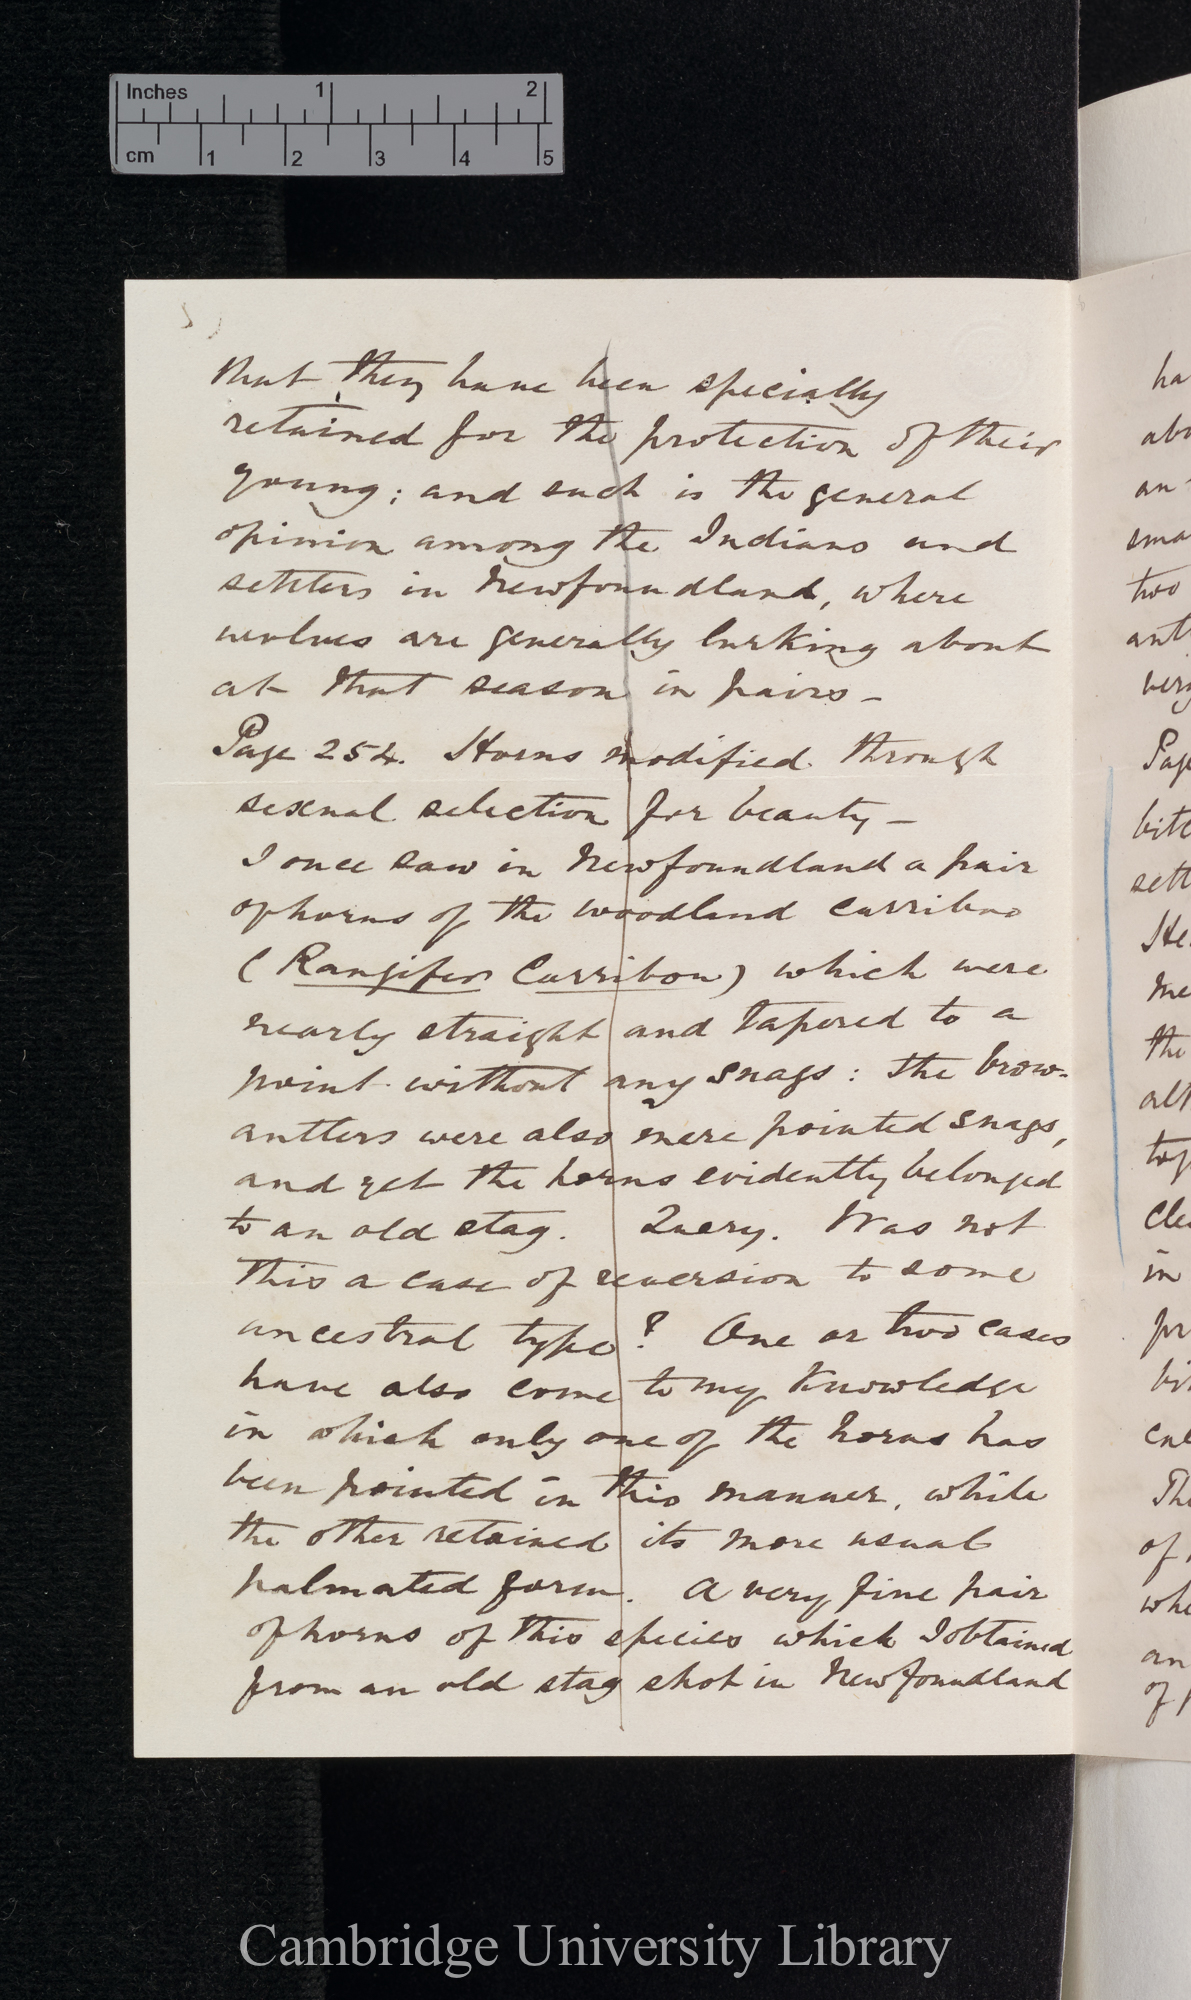 Inches 1 2
cm 1 2 3 4 5
that they have been specially
retained for the protection of their
young; and such is the general
opinion among the Indians and
settlers in Newfoundland, where
wolves are generally lurking about
at that season in pairs —
Page 254. Horns modified through
sexual selection for beauty —
I once saw in Newfoundland a pair
of horns of the woodland carribou
(Rangifer Carribou) which were
nearly straight and tapered to a
point without any snags: the brow-
antlers were also mere pointed snags,
and yet the horns evidently belonged
to an old stag. Query. Was not
this a case of reversion to some
ancestral type? One or two cases
have also come to my knowledge
in which only one of the horns has
been pointed in this manner, while
the other retained its more usual
palmated form. A very fine pair
of horns of this species which I obtained
from an old stag shot in Newfoundland
ha
abo
an
sma
two
ant
very
Page
bitc
sett
He
me
the
alt
top
cle
in
pr
bi
cal
Th
of
whe
an
of
Cambridge University Library